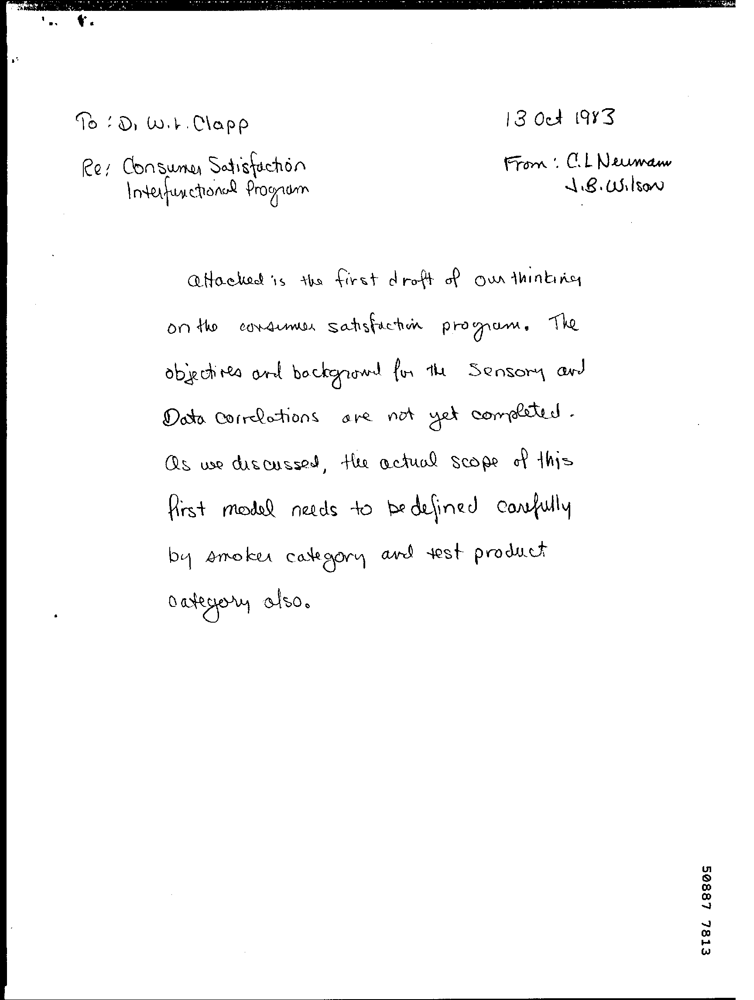 To : D. W. L. Clapp
13 Oct 1983
Re: Consumer Satisfaction
Interfunctional Program
From : C.L Neumann
J.B. Wilson
Attached is the first draft of our thinking
on the consumer satisfaction program. The
objectives and background for the Sensory and
Data correlations are not yet completed.
As we discussed, the actual scope of this
first model needs to be defined carefully
by smoker category and test product
category also.
50887 7813